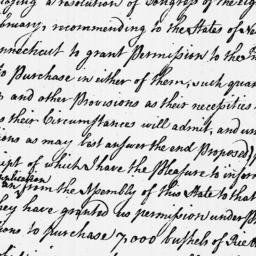 a resolution of Congress of the
recommending to the States of
to grant Permission to the
to Purchase in either of them, such
and other Provisions as their necessities
their Circumstances will admit, and
as may best answer the end Proposed,
of which I have the Pleasure to inform
from the Assembly of this State to that
they have granted us permission under
to purchase 7,000 bushels of Rice